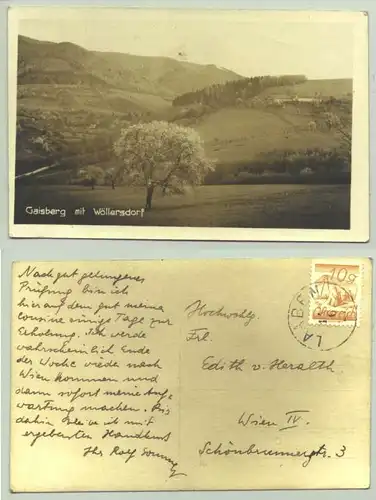 Gaisberg mit Wöllersdorf
Nach gut gelungener
Prüfung bin ich
hier auf dem gut meiner
cousine einige Tage zur
Erholung. Ich werde
wahrscheinlich Ende
der Woche wieder nach
Wien kommen und
dann sofort meine Auf-
wartung machen. Bis
dahin bleibe ich mit
ergebensten Handkuss
Ihr Rolf
Hochwohlg.
Frl.
Edith v. Heralth
Wien IV.
Schönbrunnerstr. 3
10g